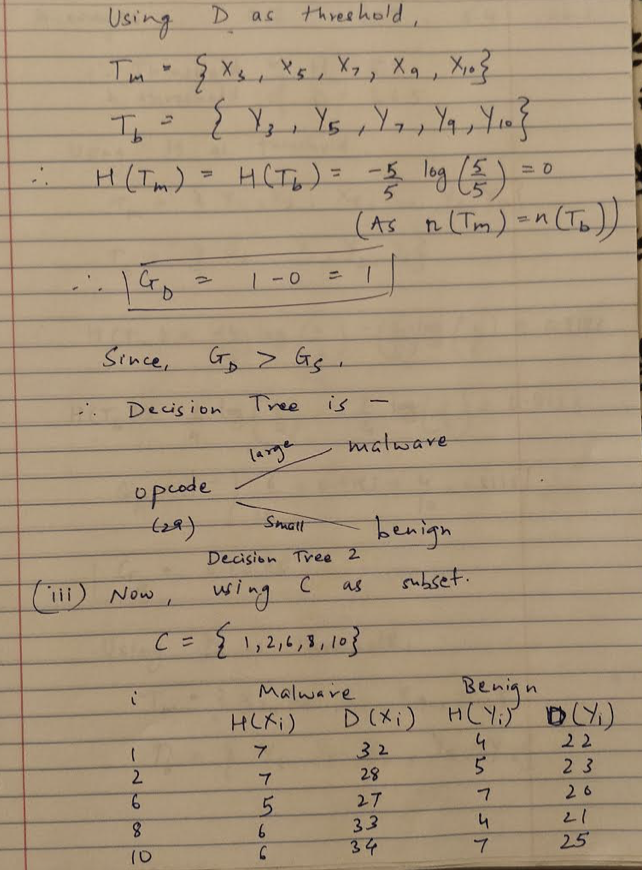 Using D as threshold,
Tm = { X3, X5, X7, X9, X10}
Tb = { Y3, Y5, Y7, Y9, Y10}
∴ H(Tm) = H(Tb) = -5/5 log(5/5) = 0
(As n(Tm) = n(Tb))
∴ GD = 1 - 0 = 1
Since, GD > GS.
∴ Decision Tree is -
large malware
opcode
(29) small benign
Decision Tree 2
(iii) Now, using C as subset.
C = { 1,2,6,8,10}
i Malware Benign
H(Xi) D(Xi) H(Yi) D(Yi)
1 7 32 4 22
2 7 28 5 23
6 5 27 7 20
8 6 33 4 21
10 6 34 7 25